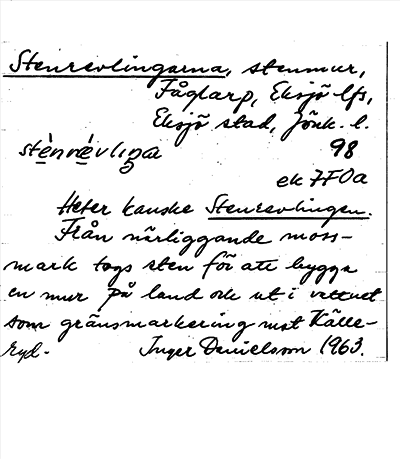 Stenrevlingarna, stenmur,
Fåglarp, Eksjö lfs,
Eksjö stad, Jönk. l.
stènrévliŋa 98
ek 7F0a
Heter kanske Stenrevlingen.
Från närliggande moss-
mark togs sten för att bygga
en mur på land och ut i vattnet
som gränsmarkering mot Källe-
ryd. Inger Danielsson 1963.